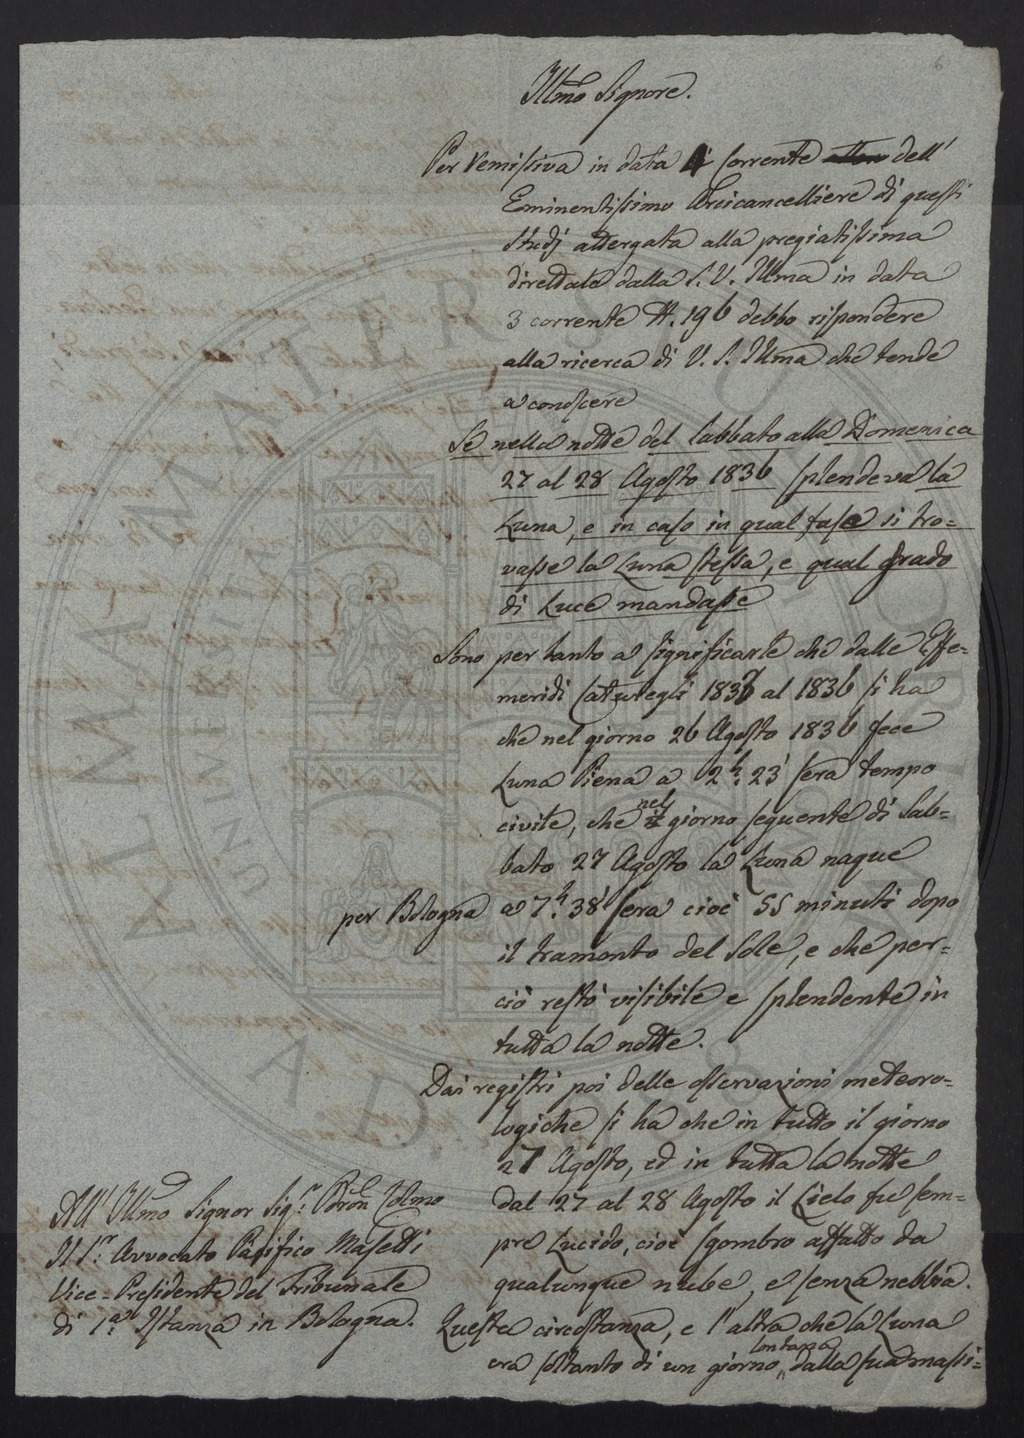 6
Illmo Signore.
Per Remissiva in data 4 corrente dell'
Eminentissimo Arcicancelliere di questi
Studj attergata alla pregiatissima
direttale dalla S. V. Illma in data
3 corrente N. 196 debbo rispondere
alla ricerca di V. S. Illma che tende
a conoscere
Se nella notte del Sabbato alla Domenica
27 al 28 Agosto 1836 splendeva la
Luna, e in caso in qual fase si tro=
vasse la Luna stessa, e qual grado
di Luce mandasse
Sono per tanto a significarle che dalle Effe=
meridi Caturegli 1837 al 1836 si ha
che nel giorno 26 Agosto 1836 fece
Luna Piena a 2h. 23' sera tempo
civile, che nel giorno seguente di Sab=
bato 27 Agosto la Luna naque
per Bologna a 7h. 38' sera cioè 55 minuti dopo
il tramonto del Sole, e che per=
ciò restò visibile e splendente in
tutta la notte.
Dai registri poi delle osservazioni meteoro=
logiche si ha che in tutto il giorno
27 Agosto, ed in tutta la notte
dal 27 al 28 Agosto il Cielo fu sem=
pre Lucido, cioè sgombro affatto da
qualunque nube, e senza nebbia.
Queste circostanza, e l'altra che la Luna
era soltanto di un giorno lontana dalla sua massi=
All' Illmo Signor Sig.r Pdron Colmo
Il S.r Avvocato Pacifico Masetti
Vice=Presidente del Tribunale
di 1.a Istanza in Bologna.
ALMA MATER STUDIORUM
A.D. 1088